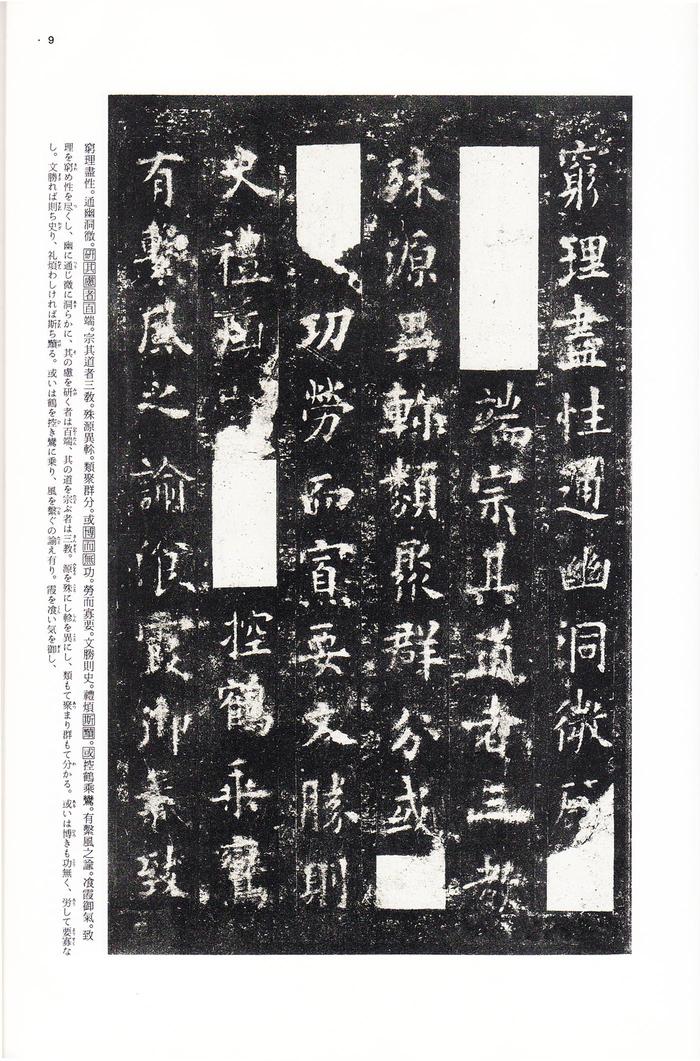 9
窮理盡性通幽洞微研
端宗其道者三教
殊源異軫類聚群分或
功勞而寡要文勝則
史禮煩控鶴乘鸞
有繫風之諭飡霞御氣致
窮理盡性。通幽洞微。研其慮者百端。宗其道者三教。殊源異軫。類聚群分。或博而無功。勞而寡要。文勝則史。禮煩斯黷。或控鶴乘鸞。有繫風之諭。飡霞御氣。致
理を窮め性を尽くし、幽に通じ微に洞らかに、其の慮を研く者は百端、其の道を宗ぶ者は三教。源を殊にし軫を異にし、類もて聚まり群もて分かる。或いは博きも功無く、労して要寡な
し。文勝れば則ち史り、礼煩わしければ斯ち黷る。或いは鶴を控き鸞に乗り、風を繫ぐの諭え有り。霞を飡い気を御し、